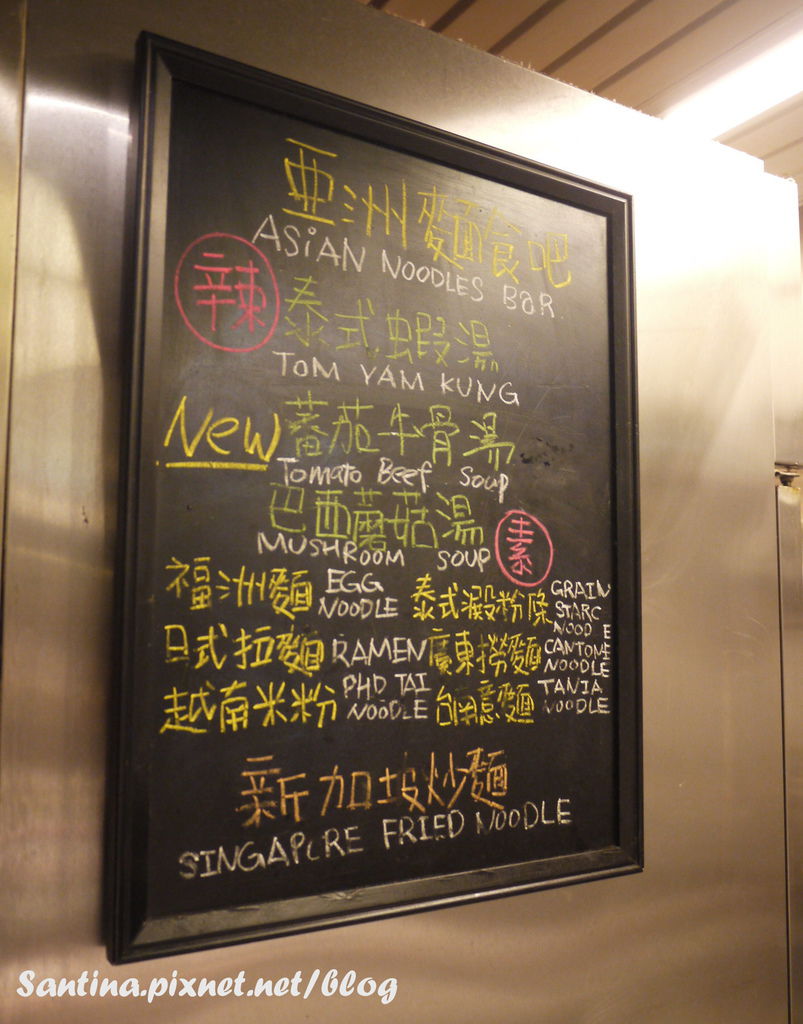 亞洲麵食吧
ASIAN NOODLES BAR
辣 泰式蝦湯
TOM YAM KUNG
New 蕃茄牛骨湯
Tomato Beef Soup
巴西蘑菇湯
MUSHROOM SOUP 素
福州麵 EGG NOODLE 泰式澱粉條 GRAIN STARC NOOD E
日式拉麵 RAMEN 廣東撈麵 CANTONE NOODLE
越南米粉 PHD TAI NOODLE 台南意麵 TANIA NOODLE
新加坡炒麵
SINGAPORE FRIED NOODLE
Santina.pixnet.net/blog